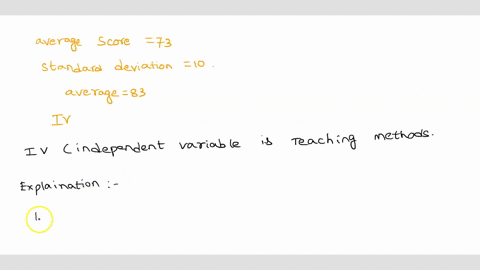 average score = 73
standard deviation = 10.
average = 83
Iv
IV (independent variable is Teaching methods.
Explaination :-
1.